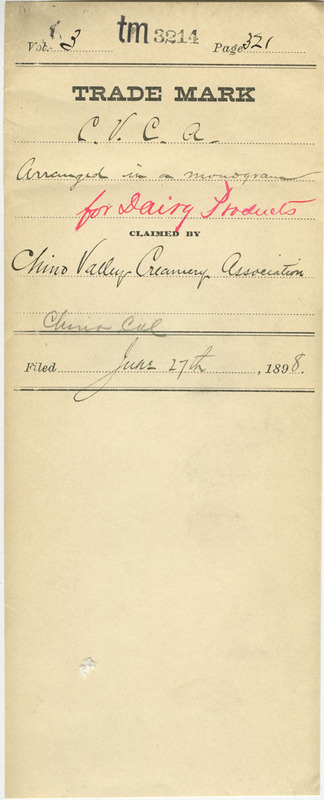 Vol. 3 tm 3214 Page 321
TRADE MARK
C. V. C. A.
Arranged in a monogram
for Dairy Products
CLAIMED BY
Chino Valley Creamery Association
Chino Cal
Filed June 27th, 1898.